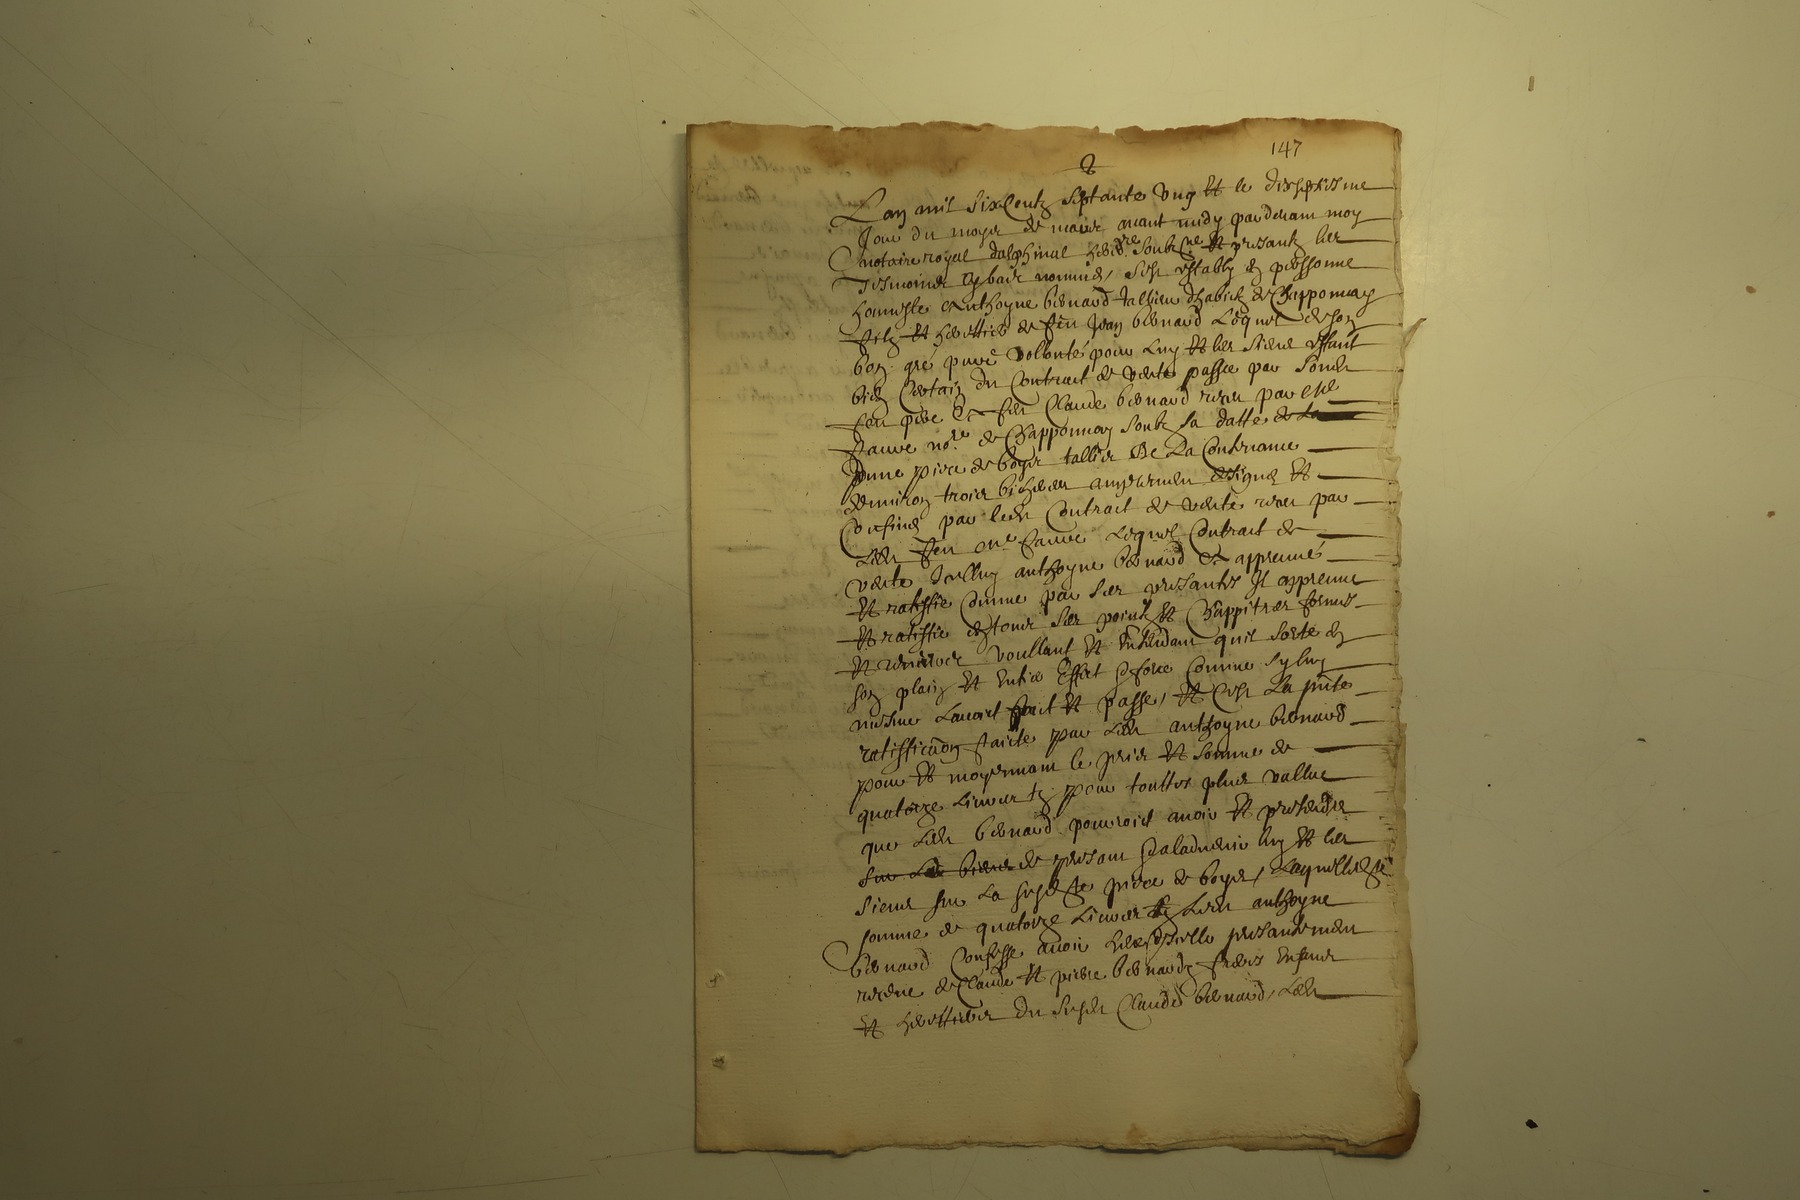 147
Lan mil six Centz septante ung et le dixseptiesme
Jour du moys de mars avant midy pardevant moy
notaire royal dalphinal heredre soubzne et presantz les
tesmoings bas nommés, sest estably en personne
honneste Anthoyne bernard tallieu dhabictz de Chapponnay
filz et herittier de feu Jean bernard Lequel de son
bon gré pure volonté pour luy et les siens estant
bien Certain du Contraict de vente passée par
feu père a feu Claude bernard receu par me
faure nore de Chapponnay soubz sa datte de la
Dune piece de boys tallies De La Contenance
denviron trois bicherées amplement designé et
Confiné par ledt Contract de vente receu par
Ledt feu me faure Lequel Contract de
vente Icelluy anthoyne bernard a appreuvé
et ratiffié Comme par ses presantes Il appreuve
et ratiffie en tous ses pointz et Chappitres
et voullant et Entendant quil sorte en
son plain et entier Effect force Comme sy luy
mesme Lavoict faict et passé, et Cest La pnte
ratiffication faicte par Ledt anthoyne bernard
pour et moyennant le pris et somme de
quatorze Livres tz pour touttes plus vallue
que Ledt bernard pourroict avoir et pretendre
sur Lesd biens de presant et aladvenir luy et les
siens sur La susdte piece de boys, Laquelle dte
somme de quatorze Livres tz Ledt anthoyne
bernard Confesse avoir presantement
receue de Claude et pierre bernardz freres Enfans
et herittiers du susdt Claude bernard, Ledt